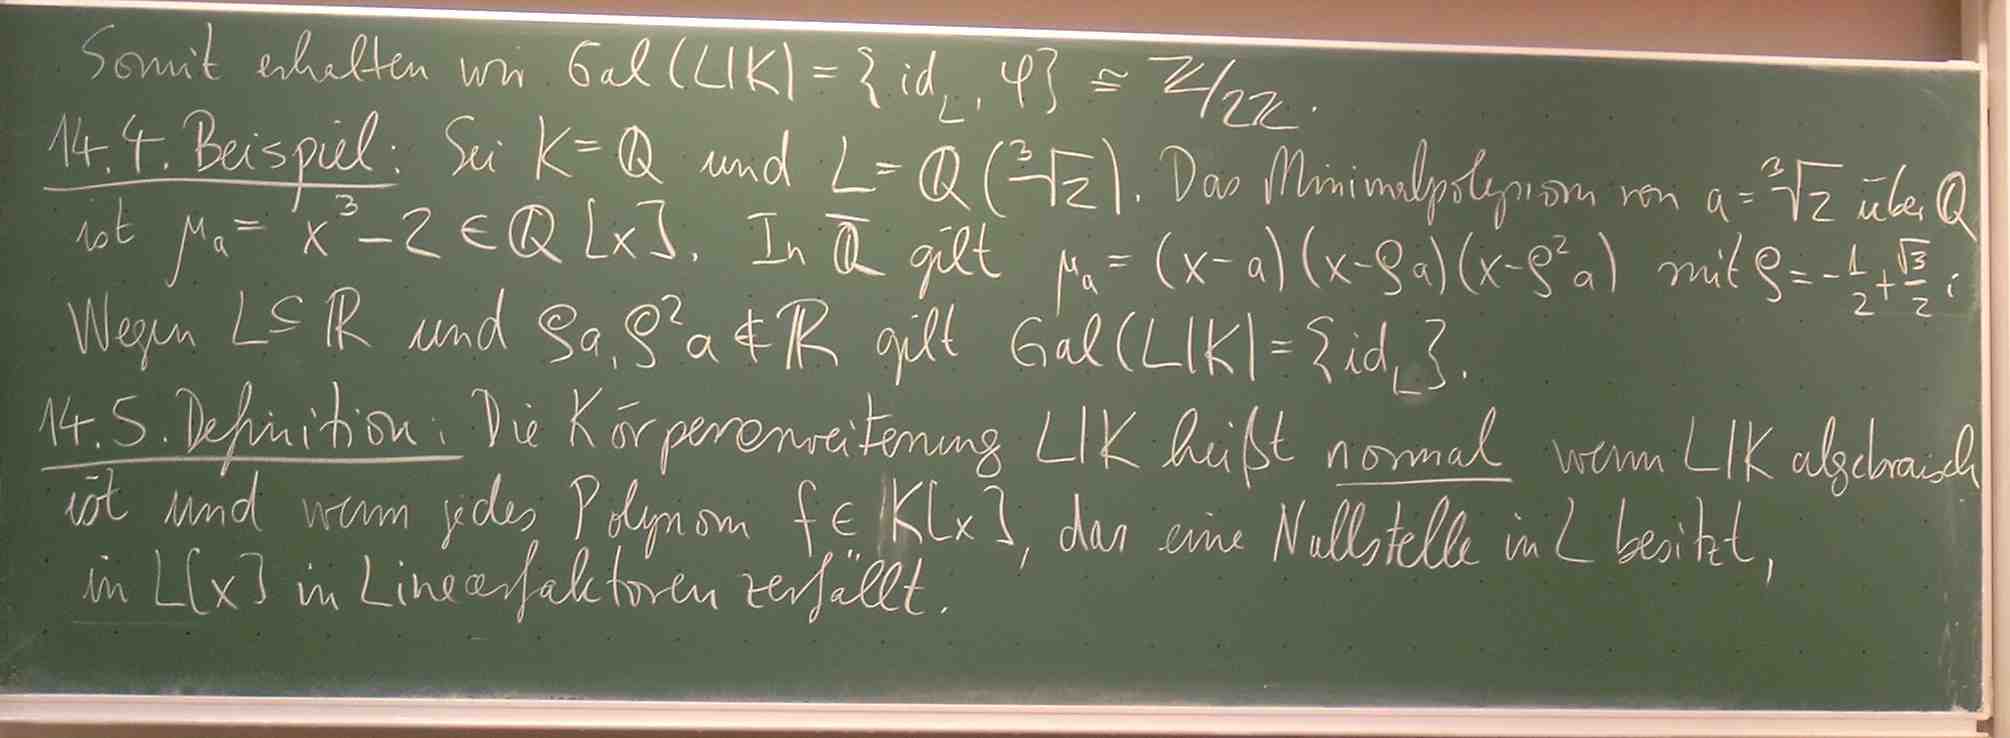 Somit erhalten wir Gal(L|K) = {id_L, φ} ≅ ℤ/2ℤ.
14.4. Beispiel: Sei K = ℚ und L = ℚ(∛2). Das Minimalpolynom von a = ∛2 über ℚ
ist μ_a = x³ - 2 ∈ ℚ[x]. In ℚ̅ gilt μ_a = (x-a)(x-ρa)(x-ρ²a) mit ρ = -1/2 + √3/2 i
Wegen L ⊆ ℝ und ρa, ρ²a ∉ ℝ gilt Gal(L|K) = {id_L}.
14.5. Definition: Die Körpererweiterung L|K heißt normal wenn L|K algebraisch
ist und wenn jedes Polynom f ∈ K[x], das eine Nullstelle in L besitzt,
in L[x] in Linearfaktoren zerfällt.